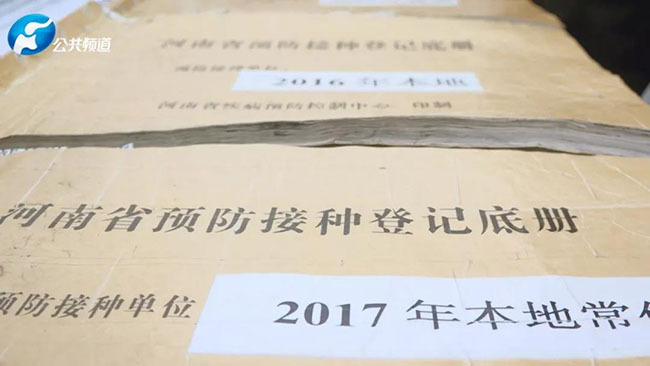 公共频道
河南省预防接种登记底册
预防接种单位:
2016 年本地
河南省疾病预防控制中心 印制
河南省预防接种登记底册
预防接种单位
2017 年本地常